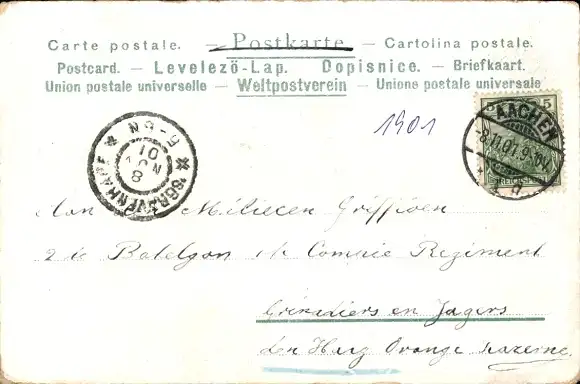 Carte postale. — Postkarte — Cartolina postale.
Postcard. — Levelező-Lap. Dopisnice. — Briefkaart.
Union postale universelle — Weltpostverein — Unione postale universale
1901
5
AACHEN
8.11.01.9-10V
'SGRAVENHAGE
5-6N
8
NOV
01
Aan Milicien Griffioen
2 de Bataljon 1e Comnie Regiment
Grenadiers en Jagers
den Haag Oranje kazerne